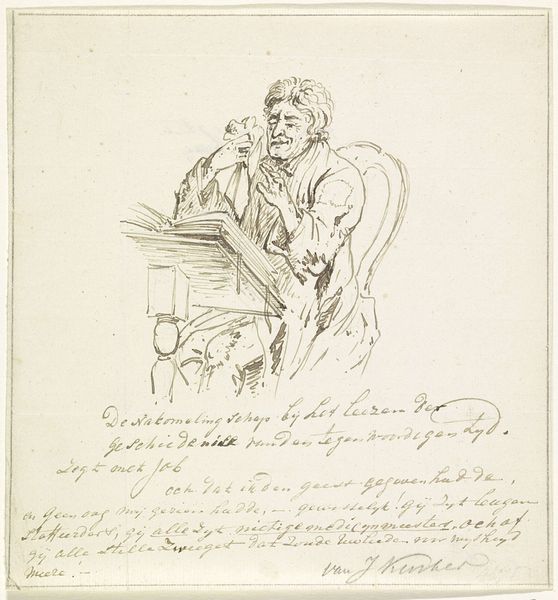 De Nakomelingschap bij het leezen der
geschiedenise van den tegenwoordigen tyd.
Zegt met Job
och dat ik den geest gegeven hadde,
en geen oog mij gezien hadde, – gewisselyk! gij zyt leugen
stoffeerders, gij alle zyt nietige medicynmeesters, och of
gij alle stille zweeget dat zoude ulieden voor wysheyd
weeze! –
van J